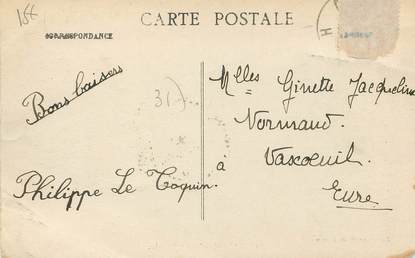 15€
CARTE POSTALE
CORRESPONDANCE
Bons baisers
31)
Philippe Le Coquin.
Melles Ginette Jacqueline
Normand.
à Vascoeuil.
Eure